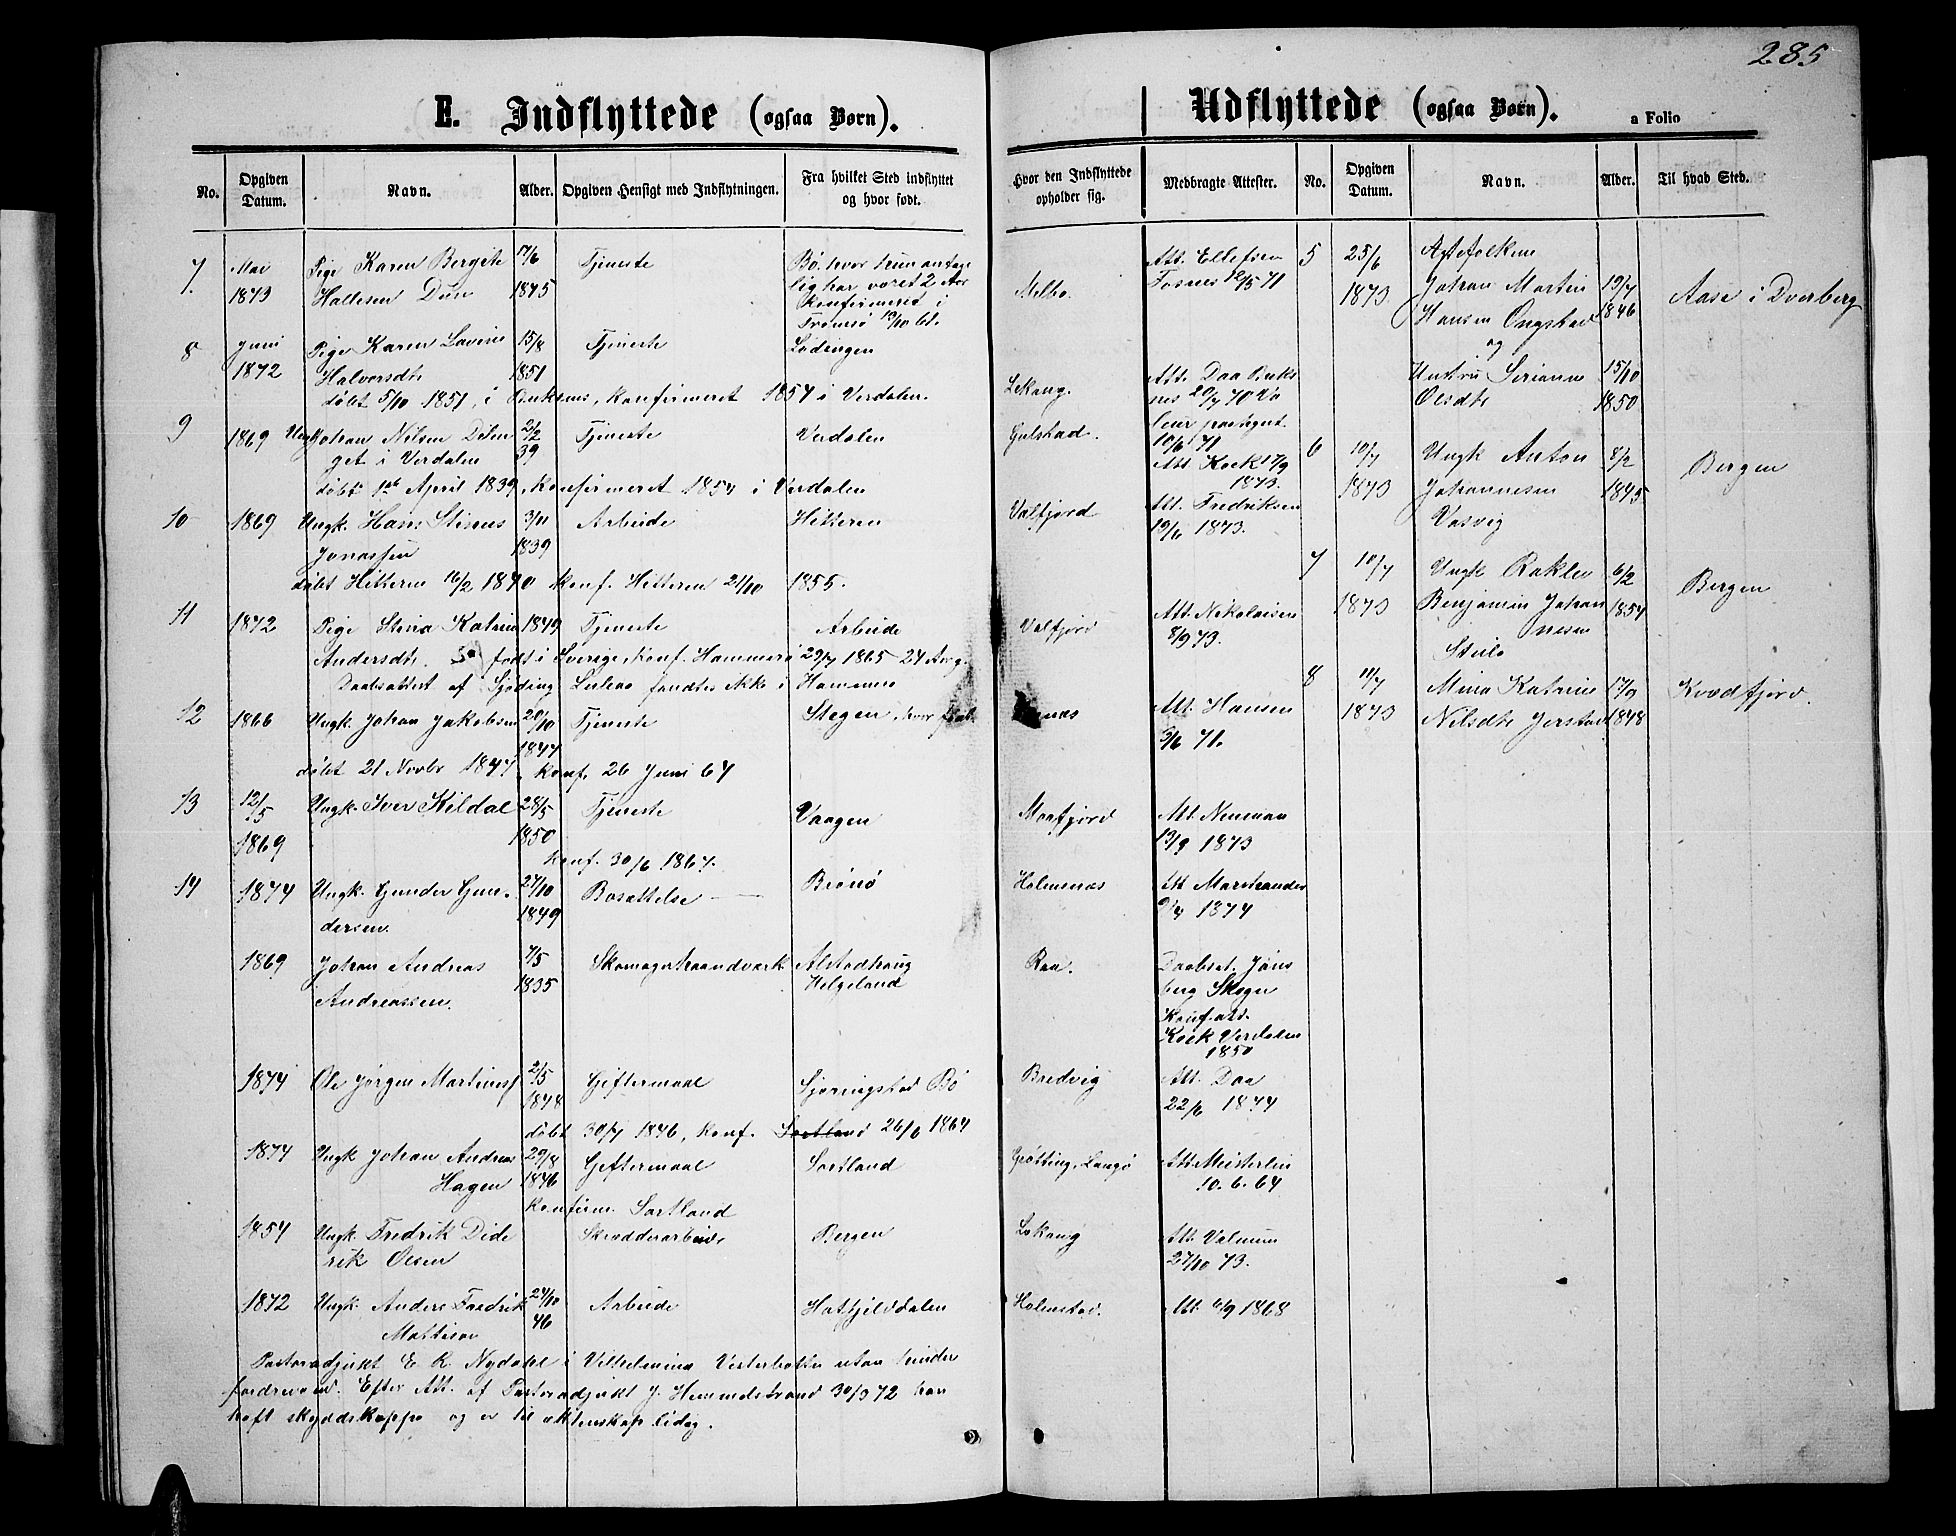 285
E. Indflyttede (ogsaa Børn).
Udflyttede (ogsaa Børn).
a Folio
No.
Opgiven Datum.
Navn.
Alder.
Opgiven Hensigt med Indflytningen.
Fra hvilket Sted indflyttet og hvor født.
Hvor den Indflyttede opholder sig.
Medbragte Attester.
No.
Opgiven Datum.
Navn.
Alder.
Til hvad Sted.
7. Mai Pige Karen Bergite 17/6 Tjeneste Bø, hvor hun antage
1873 Hallesen 1845 lig har været 2 Aar
Konfirmeret i
Tromsø
Melbo. Att. Ellefsen
Fosnes 12/5 71
8 Juni Pige Karen Lavine 15/8 Tjeneste Lødingen
1872 Halvorsdtr 1851
døbt 5/10 1851, i Buksnes, konfirmeret 1857 i Verdalen.
Lekang. Att. Daa Buks
nes 20/7 70
9 1869 Ungk Johan Nilsen 2/2 Tjeneste Verdalen
get i Verdalen 39
døbt 1ste April 1839, konfirmeret 1854 i Verdalen
Gulstad. 10/6 71
Att. Kock 17/9
1873.
10 1869 Ungk. Hans Stinus 3/11 Arbeide Hitteren
Jonassen 1839
døbt Hitteren 16/2 1840 konf. Hitteren 21/10 1855.
Valfjord Att. Fredriksen
19/6 1873.
11 1872 Pige Stina Katrine 1849 Tjeneste Arbeide
Andersdtr. født i Sverige, konf. Hammerø 29/7 1865 - 24 Aar g.
Daabsattest af Sjöding Luleaa fandtes ikke i Hammerø
Valfjord Att. Nikolaisen
8/9 73.
12 1866 Ungk. Johan Jakobsen 20/10 Tjeneste Stegen, hvor født
1847
døbt 21 Novbr 1847, konf. 26 Juni 64
Att. Hansen
71.
13 12/5 Ungk. Iver Kildal 28/5 Tjeneste Vaagen
1869 1850
konf. 30/6 1867.
Morfjord Att. Neuman
13/9 1873
14 1874 Ungk. Gunder Gun- 27/10 Bosættelse Brønø
dersen. 1849
Holmsnæs Att Marstrander
1874
1869 Johan Andreas 7/5 Skomagerhaandværk Alstadhaug
Andreassen. 1835 Helgeland
Raa. Daabsat. Jøns
berg Skogn
Konf.att.
Kock Verdalen
1850
1874 Ole Jørgen Martinus 2/5 Giftermaal Sjøringstad Bø
1848
døbt 30/7 1846, konf. Sortland 26/6 1864
Bredvig Att. Daa
22/6 1874
1874 Ungk Johan Andreas 29/8 Giftermaal Sortland
Hagen 1846
konfirm. Sortland
Grøtting, Langø Att. Meisterlin
10. 6. 64
1854 Ungk. Fredrik Dide Skrædderarbeide Bergen
rik Olsen
Lekang Att. Valnum
27/10 73.
1872 Ungk. Anders Fredrik 24/10 Arbeide Hatfjelddalen
Mattison 46
Holmstad. Att. 6/9 1868
Pastoradjukt E. R. Nydahl i Vilhelmina Vesterbotten utan hinder
Efter Att. af Pastoradjukt J. Hemmelstrand 30/3 72 han
haft skyddskoppo og er til æktenskap lidog.
5 25/6 Aftefolkene
1873 Johan Martin 19/7 Aase i Dverberg
Hansen Ongstad 1846
og
Hustru Serianne 15/10
Olsdtr 1850
6 10/7 Ungk Anton 8/2 Bergen
1873 Johannesen 1845
Vasvig
7 10/7 Ungk Rakler 6/2 Bergen
1873 Benjamin Johan 1854
nesen
Steilo
8 11/7 Mina Katrine 17/9 Kvædfjord.
1873 Nilsdtr Jerstad 1848